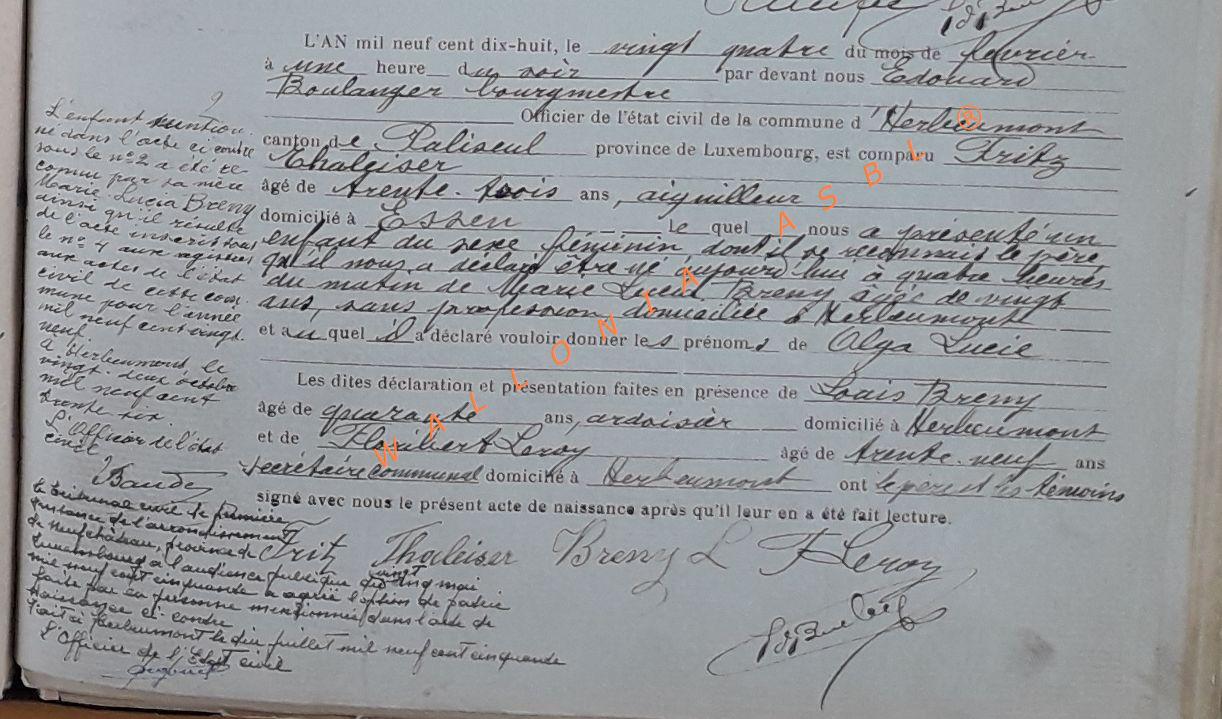 L'AN mil neuf cent dix-huit, le vingt quatre du mois de février
à une heure du soir par devant nous Edouard
Boulanger bourgmestre
Officier de l'état civil de la commune d'Herbeumont
canton de Paliseul province de Luxembourg, est comparu Fritz
Thaleiser
âgé de trente-trois ans, aiguilleur
domicilié à Essen le quel nous a présenté un
enfant du sexe féminin, dont il se reconnait le père
qu'il nous a déclaré être né aujourd'hui à quatre heures
du matin de Marie Lucia Breny âgée de vingt
ans, sans profession, domiciliée à Herbeumont
et au quel il a déclaré vouloir donner les prénoms de Olga Lucie
Les dites déclaration et présentation faites en présence de Louis Breny
âgé de quarante ans, ardoisier domicilié à Herbeumont
et de Floribert Leroy âgé de trente-neuf ans
secrétaire communal domicilié à Herbeumont ont le père et les témoins
signé avec nous le présent acte de naissance après qu'il leur en a été fait lecture.
Fritz Thaleiser Breny L F Leroy
L'enfant mention-
né dans l'acte ci contre
sous le n° 2 a été re-
connu par sa mère
Marie-Lucia Breny
ainsi qu'il résulte
de l'acte inscrit sous
le n° 4 aux registres
aux actes de l'état
civil de cette com-
mune pour l'année
mil neuf cent vingt-
neuf
à Herbeumont, le
vingt-deux octobre
mil neuf cent
trente-six
L'Officier de l'état
civil
Le tribunal civil de première
instance de l'arrondissement
de Neufchâteau, province de
Luxembourg à l'audience publique du vingt cinq mai
mil neuf cent cinquante a agréé l'option de patrie
faite par la personne mentionnée dans l'acte de
naissance ci-contre
Fait à Herbeumont le dix juillet mil neuf cent cinquante
L'Officier de l'Etat civil
WALLONIA ASBL ®